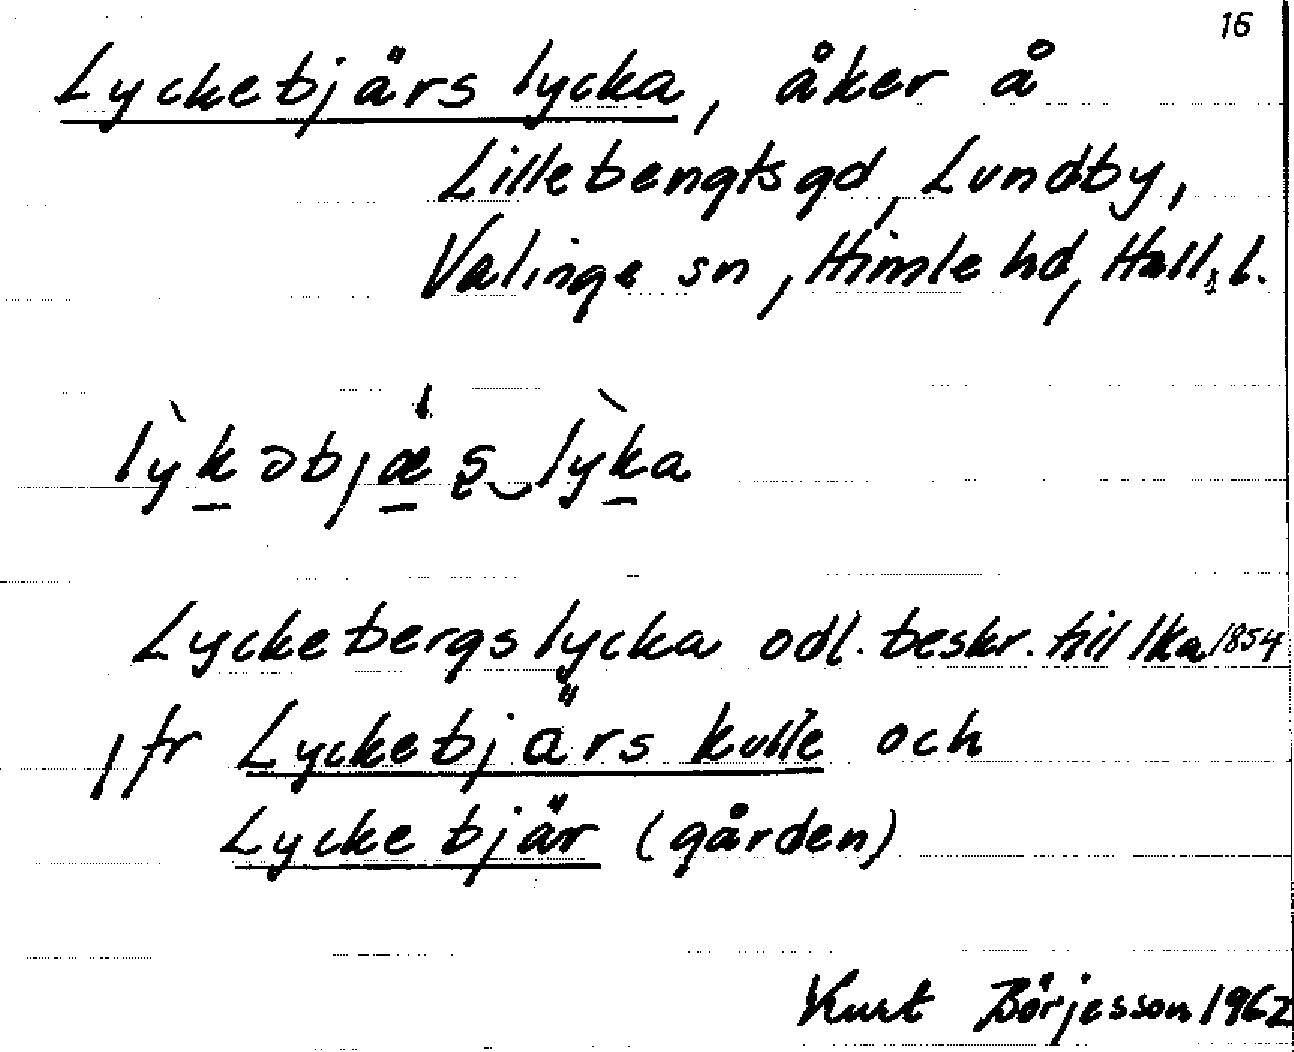 16
Lyckebjärs lycka, åker å
Lillebengtsgd, Lundby,
Valinge sn, Himle hd, Hall. l.
lỳkəbjæʂ‿lỳka
Lyckebergslycka odl. beskr. till lka 1854
jfr Lyckebjärs kulle och
Lyckebjär (gården)
Kurt Börjesson 1962